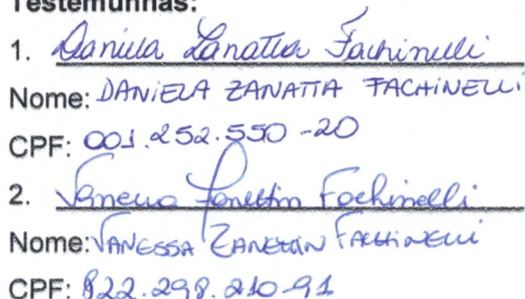 Testemunhas:
1. Daniela Zanatta Fachinelli
Nome: DANIELA ZANATTA FACHINELLI
CPF: 001.252.550-20
2. Vanessa Fachinelli
Nome: VANESSA FACHINELLI
CPF: 822.298.210-91